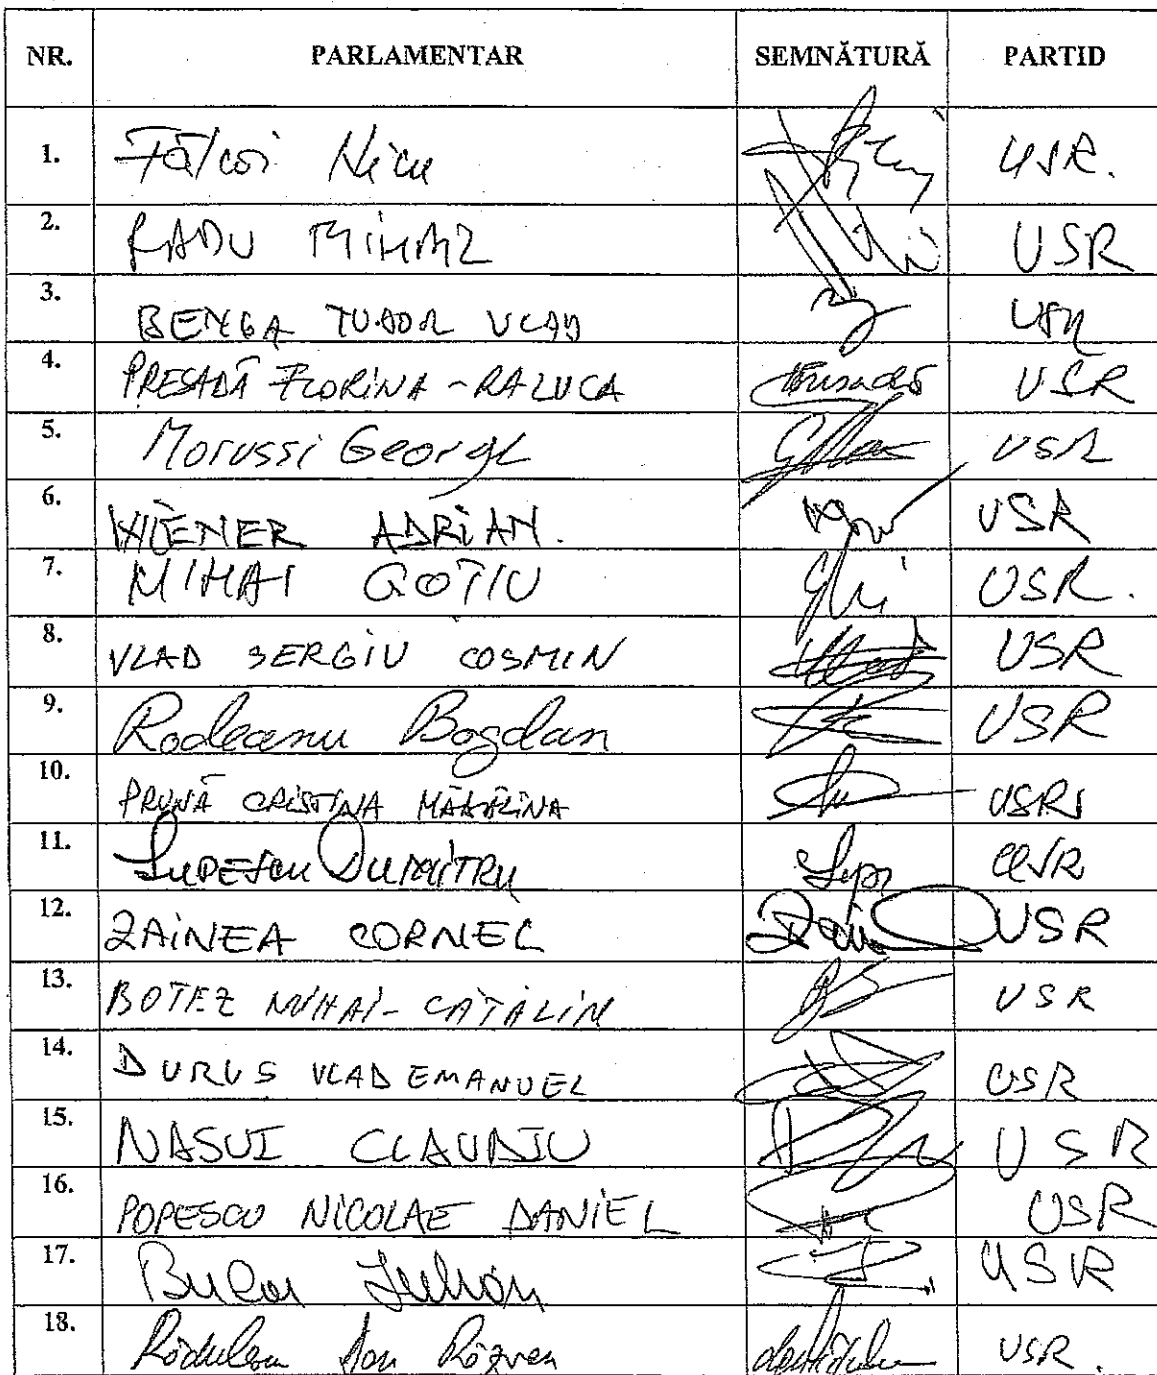 NR. PARLAMENTAR SEMNĂTURĂ PARTID
1. Fălcoi Nicu USR.
2. RADU MIHAIL USR
3. BENGA TUDOR VLAD USR
4. PRESADĂ FLORINA-RALUCA USR
5. Morussi George USR
6. WIENER ADRIAN. USR
7. MIHAI GOȚIU USR.
8. VLAD SERGIU COSMIN USR
9. Rodeanu Bogdan USR
10. PRUNĂ CRISTINA MĂDĂLINA USR
11. LUPESCU DUMITRU USR
12. ZAINEA CORNEL USR
13. BOTEZ MIHAI-CĂTĂLIN USR
14. DURUS VLAD EMANUEL USR
15. NASUI CLAUDIU USR
16. POPESCU NICOLAE DANIEL USR
17. Bulai Iulian USR
18. Rădulescu Dan Răzvan USR.